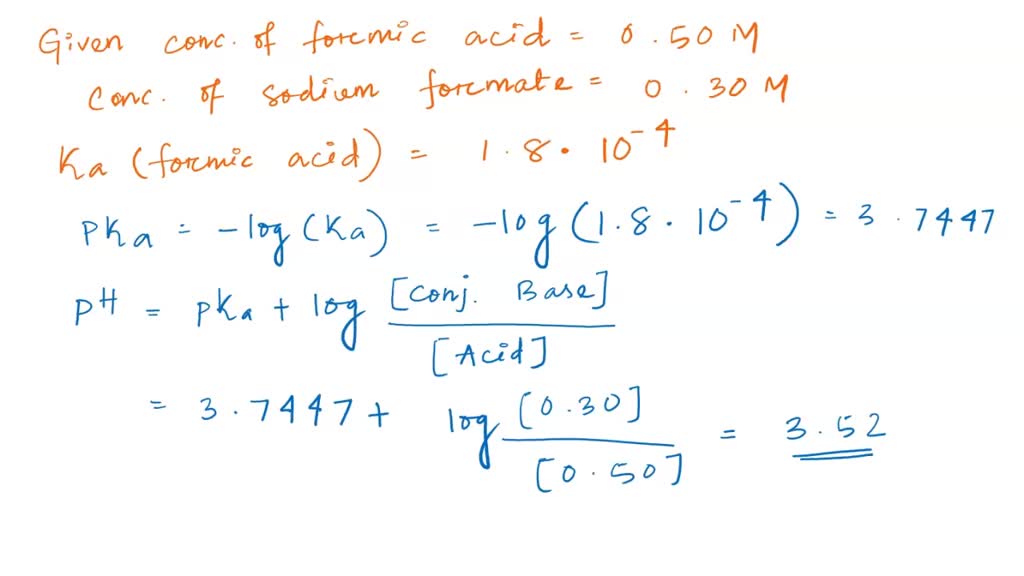 Given conc. of foremic acid = 0.50 M
Conc. of sodium foremate = 0.30 M
Ka (formic acid) = 1.8 · 10⁻⁴
PKa = -log (Ka) = -log (1.8 · 10⁻⁴) = 3.7447
PH = PKa + log [Conj. Base] / [Acid]
= 3.7447 + log [0.30] / [0.50] = 3.52